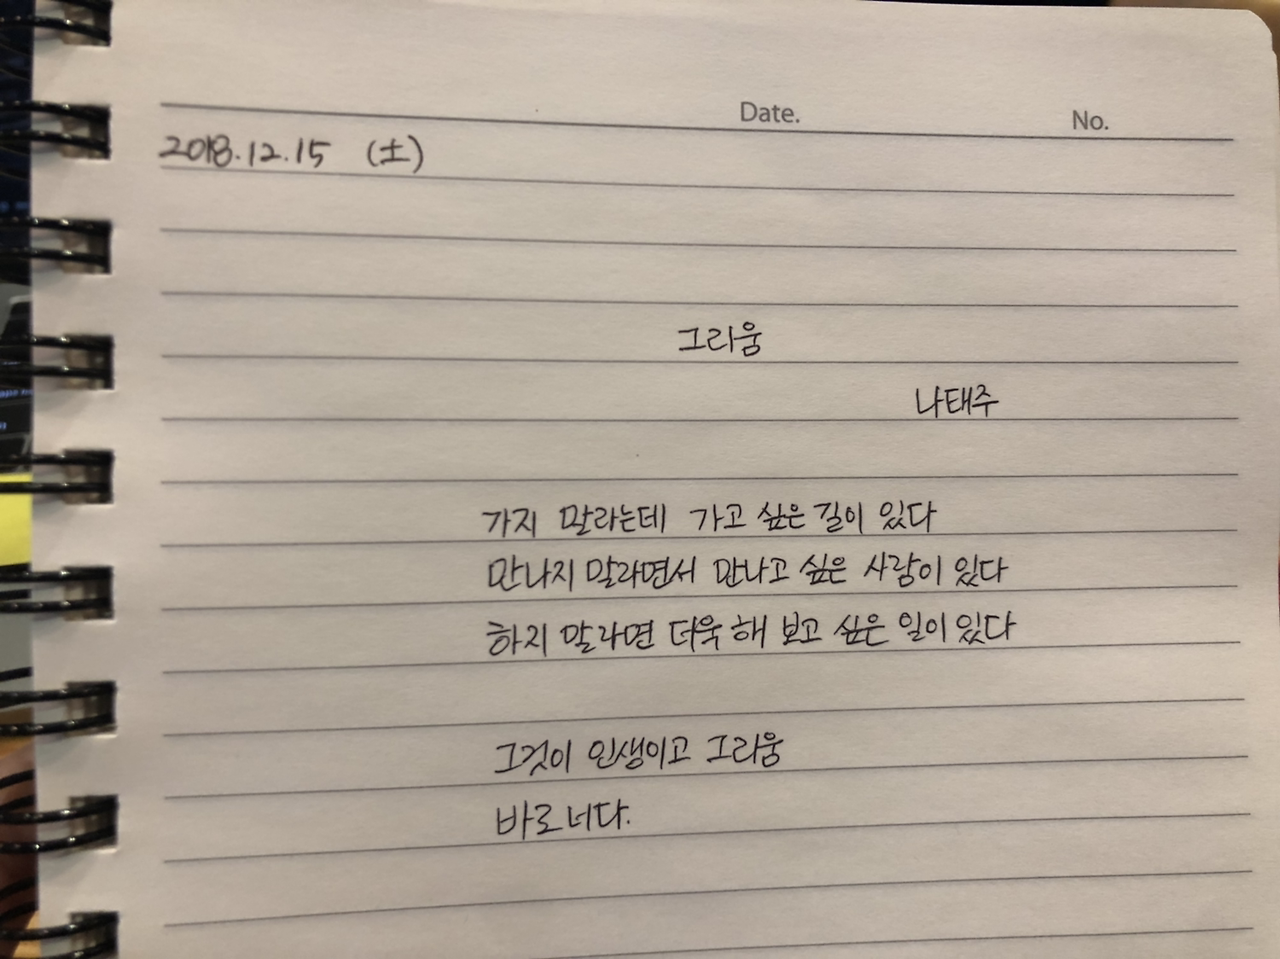 Date. No.
2018.12.15 (土)
그리움
나태주
가지 말라는데 가고 싶은 길이 있다
만나지 말라면서 만나고 싶은 사람이 있다
하지 말라면 더욱 해 보고 싶은 일이 있다
그것이 인생이고 그리움
바로 너다.